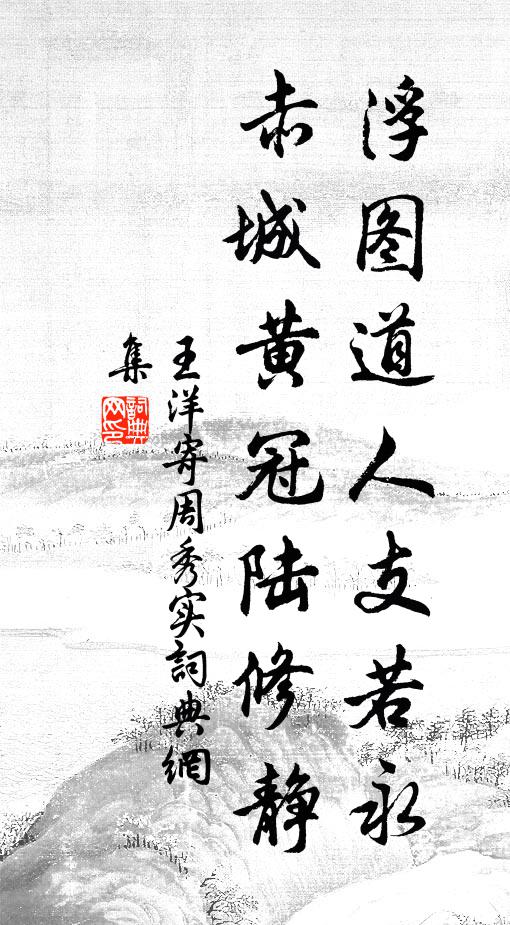 浮图道人支若永
赤城黄冠陆修静
王洋寄周秀实詞典網
集
詞典網印